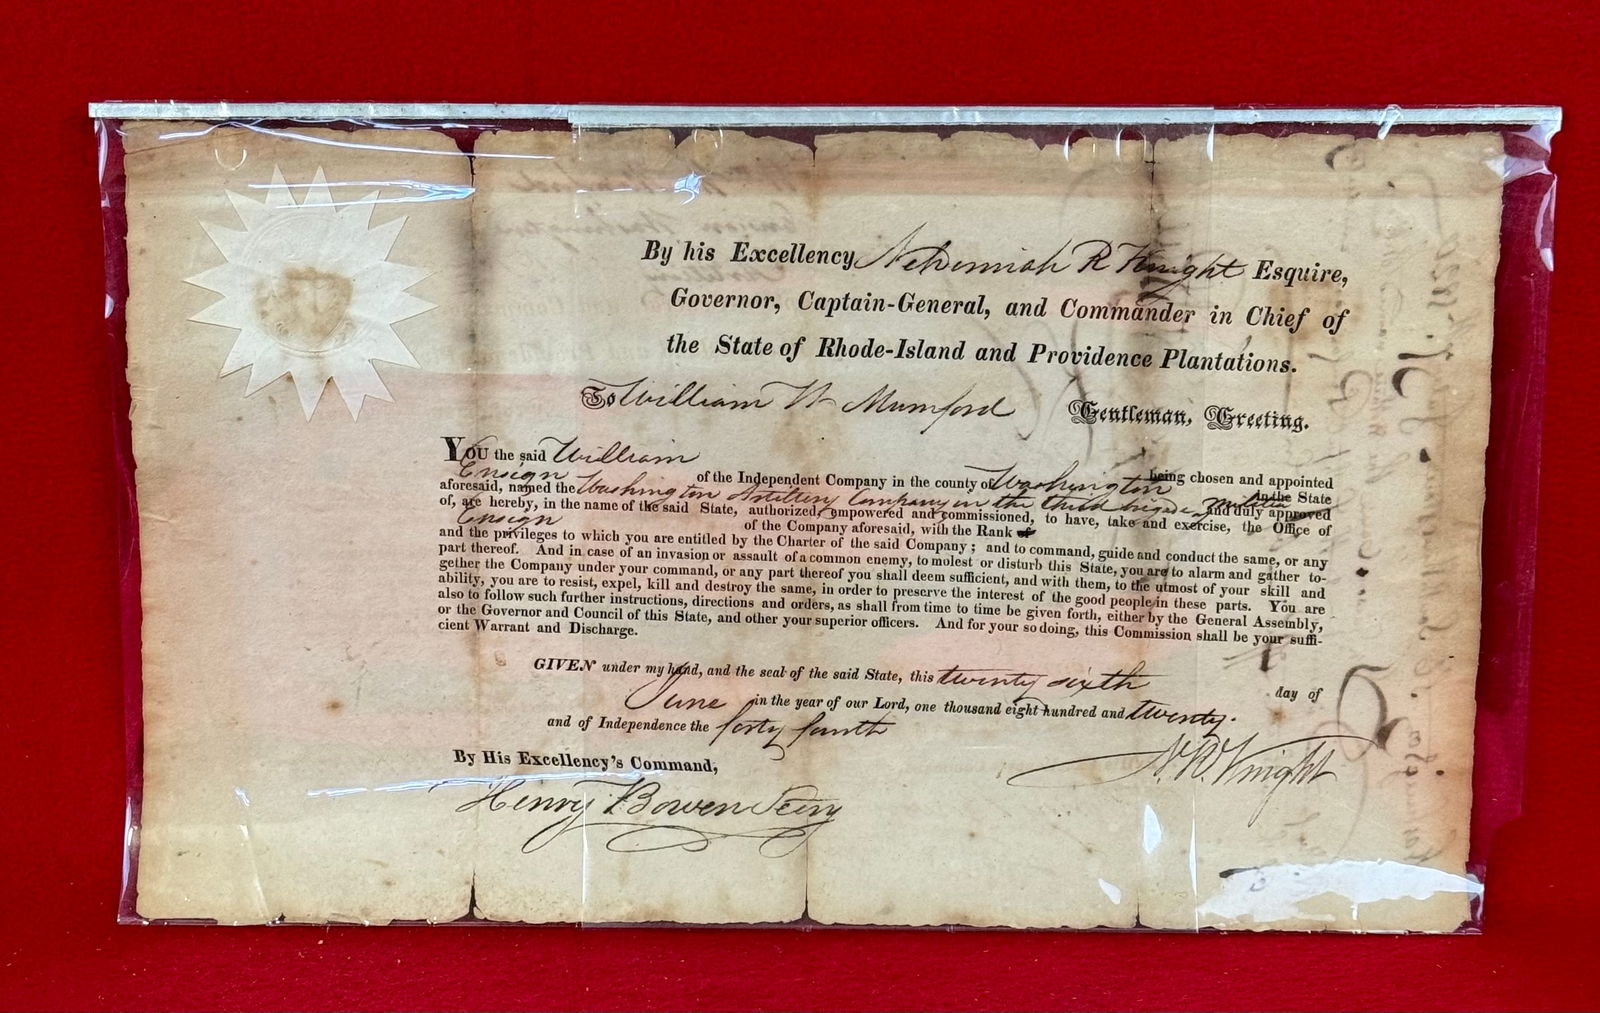 By his Excellency Nehemiah R Knight Esquire,
Governor, Captain-General, and Commander in Chief of
the State of Rhode-Island and Providence Plantations.
To William W Mumford Gentleman, Greeting.
YOU the said William being chosen and appointed
Ensign of the Independent Company in the county of Washington in the State
aforesaid, named the Washington Artillery Company in the third brigade of militia and duly approved
of, are hereby, in the name of the said State, authorized, empowered and commissioned, to have, take and exercise, the Office of
Ensign of the Company aforesaid, with the Rank of
and the privileges to which you are entitled by the Charter of the said Company; and to command, guide and conduct the same, or any
part thereof. And in case of an invasion or assault of a common enemy, to molest or disturb this State, you are to alarm and gather to-
gether the Company under your command, or any part thereof you shall deem sufficient, and with them, to the utmost of your skill and
ability, you are to resist, expel, kill and destroy the same, in order to preserve the interest of the good people in these parts. You are
also to follow such further instructions, directions and orders, as shall from time to time be given forth, either by the General Assembly,
or the Governor and Council of this State, and other your superior officers. And for your so doing, this Commission shall be your suffi-
cient Warrant and Discharge.
GIVEN under my hand, and the seal of the said State, this twenty sixth day of
June in the year of our Lord, one thousand eight hundred and twenty.
and of Independence the forty fourth
By His Excellency's Command,
N. R. Knight
Henry Bowen Secry